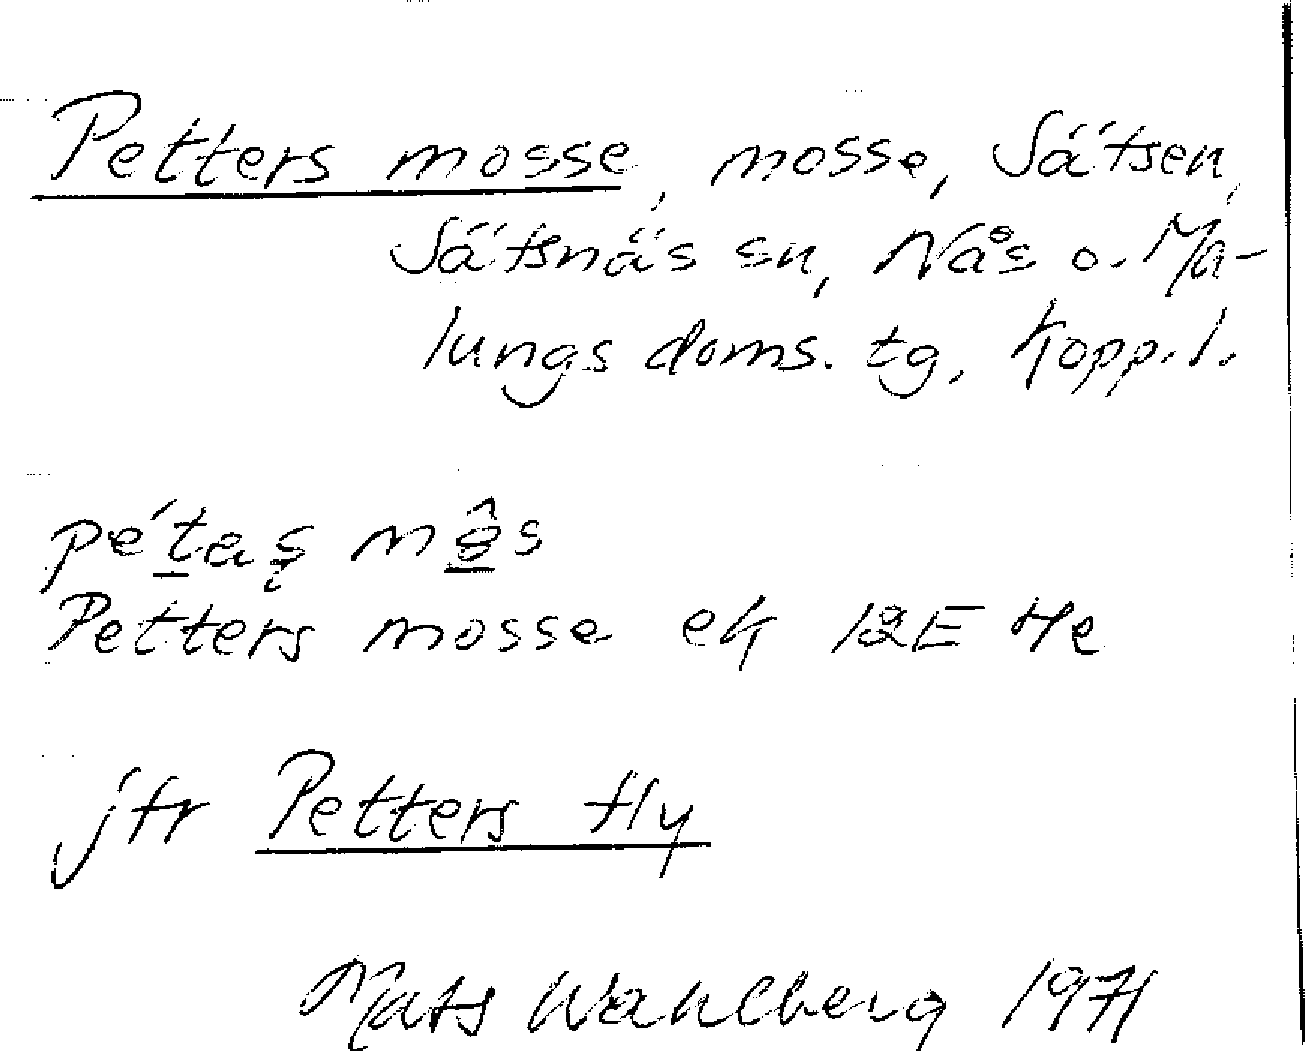 Petters mosse, mosse, Sätsen,
Sätsnäs sn, Nås o. Ma-
lungs doms. tg, Kopp. l.
Petters mosse ek 12E He
jfr Petters fly
Mats Wahlberg 1971